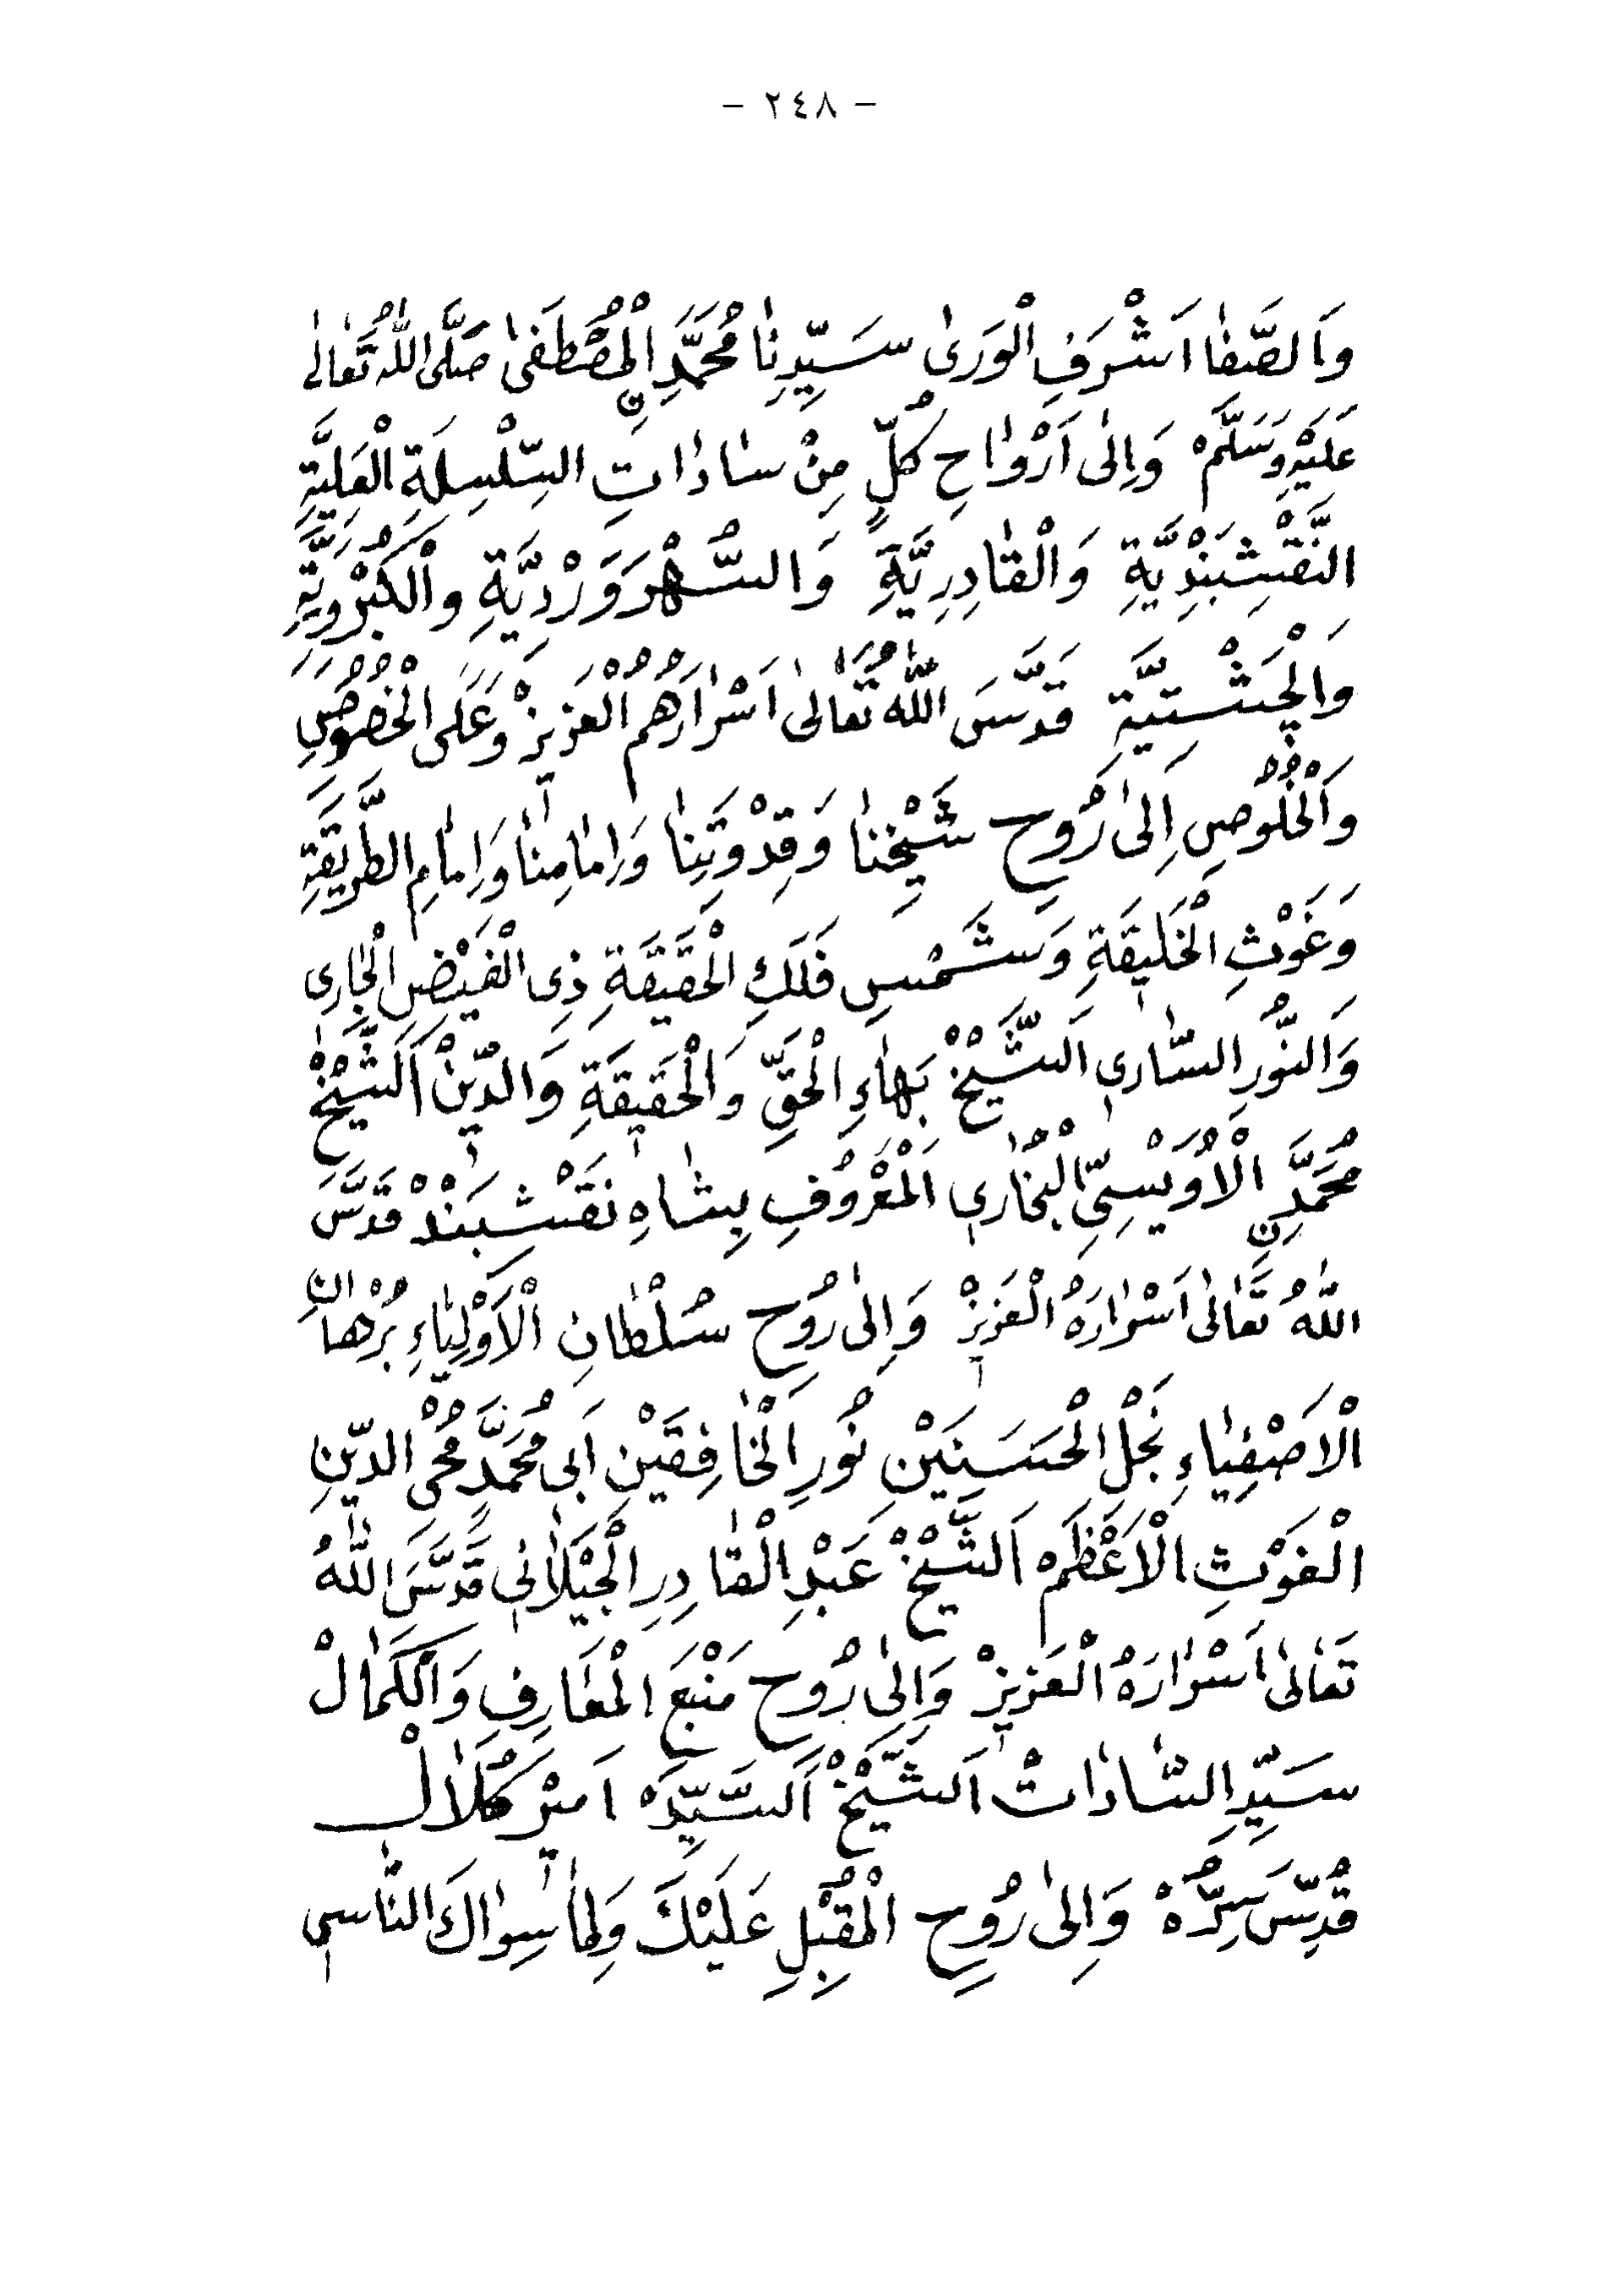 - ٢٤٨ -
وَالصَّفٰا اَشْرَفِ الْوَرٰى سَيِّدِنٰا مُحَمَّدِنِ الْمُصْطَفٰى صَلَّى اللّٰهُ تَعٰالٰى
عَلَيْهِ وَسَلَّمْ وَاِلٰى اَرْوٰاحِ كُلٍّ مِنْ سٰادٰاتِ السِّلْسِلَةِ الْعَلِيَّةِ
النَّقْشِبَنْدِيَّةِ وَالْقٰادِرِيَّةِ وَالسُّهْرَوَرْدِيَّةِ وَالْكُبْرَوِيَّةِ
وَالْچِشْتِيَّةِ قَدَّسَ اللّٰهُ تَعٰالٰى اَسْرٰارَهُمُ الْعَزِيزْ وَعَلَى الْخُصُوصِ
وَالْخُلُوصِ اِلٰى رُوحِ شَيْخِنٰا وَقِدْوَتِنٰا وَاِمٰامِنٰا وَاِمٰامِ الطَّرِيقَةِ
وَغَوْثِ الْخَلِيقَةِ وَشَمْسِ فَلَكِ الْحَقِيقَةِ ذِى الْفَيْضِ الْجٰارِى
وَالنُّورِ السّٰارِى اَلشَّيْخْ بَهٰاءِ الْحَقِّ وَالْحَقِيقَةِ وَالدِّينْ اَلشَّيْخْ
مُحَمَّدِنِ الْاُوَيْسِىِّ الْبُخٰارِى الْمَعْرُوفِ بِشٰاهِ نَقْشِبَنْدْ قَدَّسَ
اللّٰهُ تَعٰالٰى اَسْرٰارَهُ الْعَزِيزْ وَاِلٰى رُوحِ سُلْطٰانِ الْاَوْلِيٰاءِ بُرْهٰانِ
الْاَصْفِيٰاءِ نَجْلِ الْحَسَنَيْنِ نُورِ الْخٰافِقَيْنِ اَبِى مُحَمَّدٍ مُحْىِ الدِّينِ
الْغَوْثِ الْاَعْظَمْ اَلشَّيْخْ عَبْدِ الْقٰادِرِ الْجَيْلَانِى قَدَّسَ اللّٰهُ
تَعٰالٰى اَسْرٰارَهُ الْعَزِيزْ وَاِلٰى رُوحِ مَنْبَعِ الْمَعٰارِفِ وَالْكَمٰالْ
سَيِّدِ السّٰادٰاتْ اَلشَّيْخْ اَلسَّيِّدْ اَمِيْر كُلَالْ
قُدِّسَ سِرُّهْ وَاِلٰى رُوحِ الْمُقْبِلِ عَلَيْكَ وَلِمٰا سِوٰاكَ النّٰاسِى